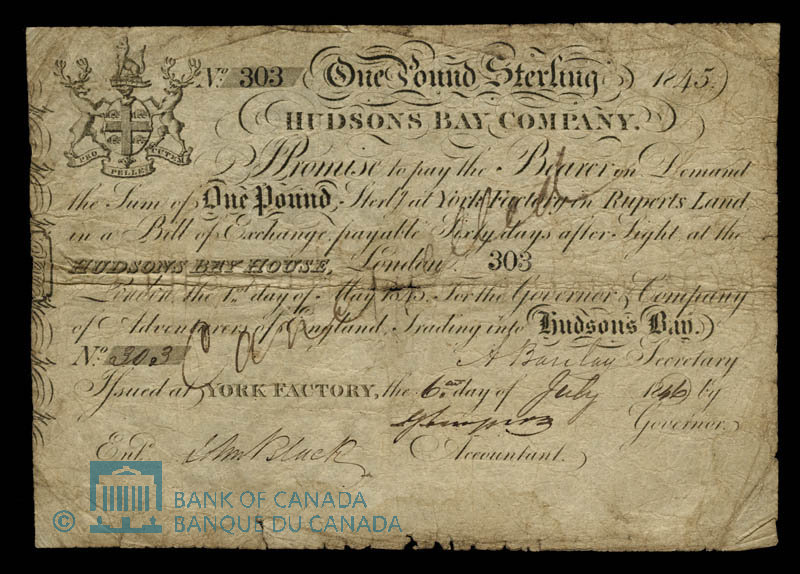 No. 303 One Pound Sterling 1845.
HUDSONS BAY COMPANY.
PRO PELLE CUTEM
I Promise to pay the Bearer on Demand
the Sum of One Pound, Sterlg. at York Factory on Ruperts Land
in a Bill of Exchange payable Sixty days after Sight at the
HUDSONS BAY HOUSE, London. 303
London, the 1st day of May 1845. For the Governor & Company
of Adventurers of England, Trading into Hudson's Bay.
No. 303 A Barclay Secretary
Issued at YORK FACTORY, the 6 day of July 1846 by
G Simpson Governor.
Entd. Black Accountant.
Cancelled
© BANK OF CANADA
BANQUE DU CANADA